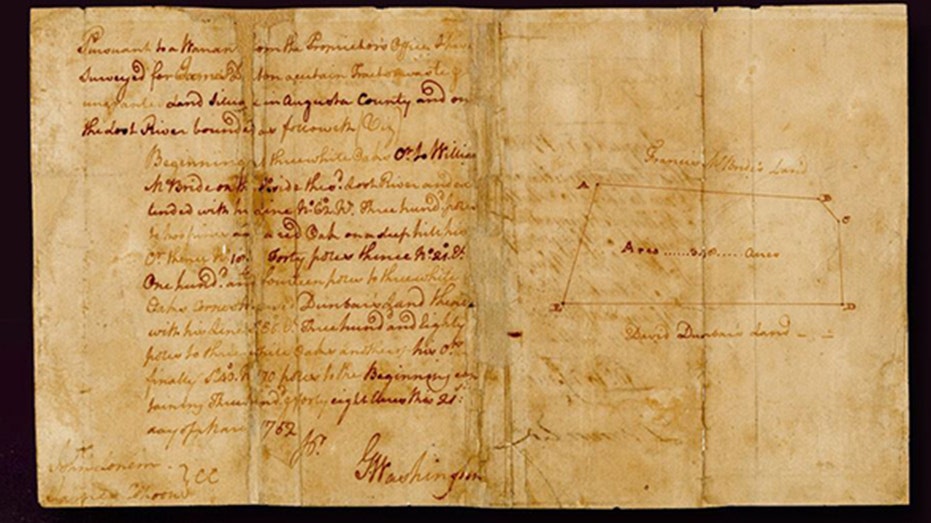 Pursuant to a Warrant from the Proprietor's Office I have
Surveyed for James ton a certain Tract of waste &
ungranted Land Situate in Augusta County and on
the Lost River bounded as followeth (Viz)
Beginning at three white Oaks Cr. to William
McBride on the Side the sd. Lost River and ex
tended with his Line No. 62 Wt. Three hund. poles
to a red Oak on a steep hill his
Cr. thence No. 10 Forty poles thence No. 21 Et.
One hund. and fourteen poles to three white
Oaks Corner Dunbar's Land thence
with his Line Three hund and Eighty
poles to three white Oaks another of his Crs.
finally S 43. W 70 poles to the Beginning con
taining Three hund & forty eight Acres this 21st
day of 1752
G Washington
John Lonem
CC
Francis McBride's Land
A B
C
Area ...... Acres
E D
David Dunbar's Land